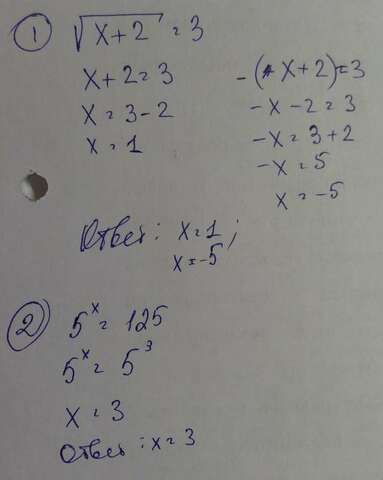 1 √x+2 = 3
x+2=3
x = 3-2
x = 1
-(x+2)=3
-x-2=3
-x=3+2
-x=5
x=-5
Ответ: x=1;
x=-5
2 5^x = 125
5^x = 5^3
x = 3
Ответ: x=3